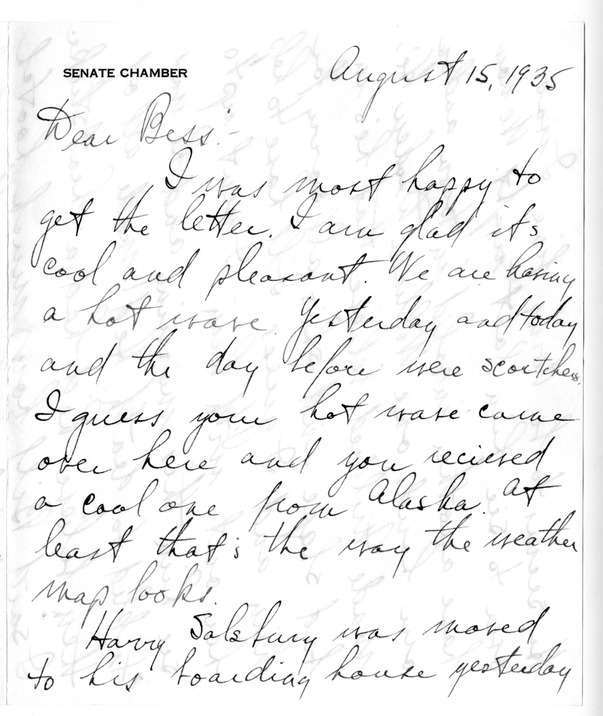 SENATE CHAMBER
August 15, 1935
Dear Bess:-
I was most happy to
get the letter. I am glad its
cool and pleasant. We are having
a hot wave. Yesterday and today
and the day before were scortchers.
I guess your hot wave came
over here and you recieved
a cool one from Alaska. At
least that's the way the weather
map looks.
Harry Salsbury was moved
to his boarding house yesterday